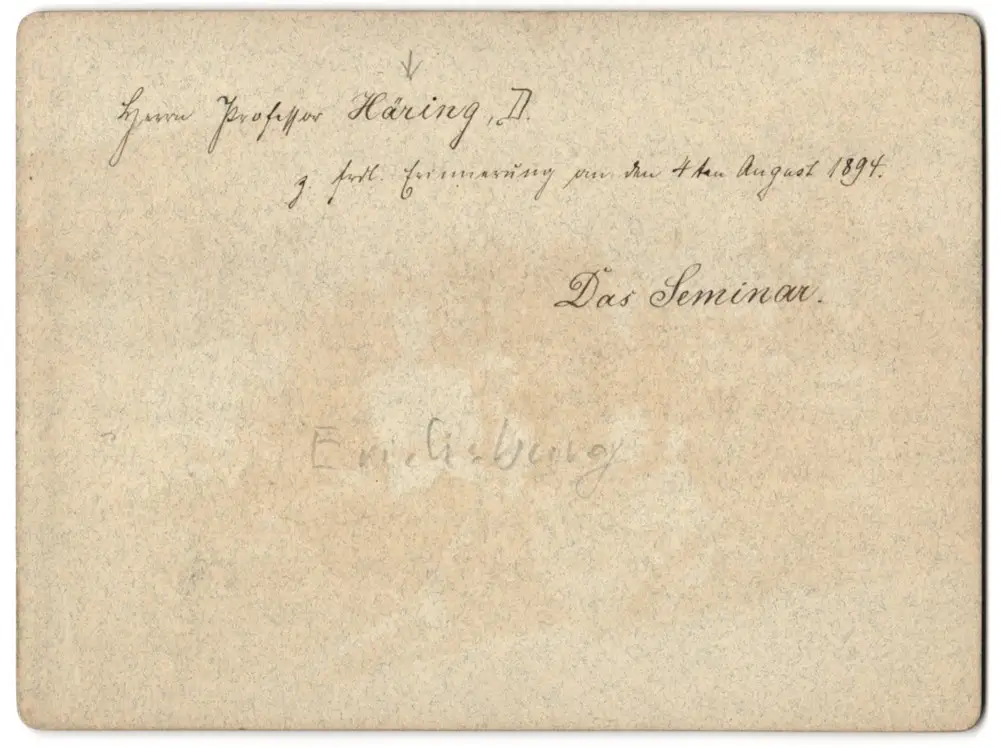 Herrn Professor Häring, D.
z. frdl. Erinnerung an den 4ten August 1894.
Das Seminar.